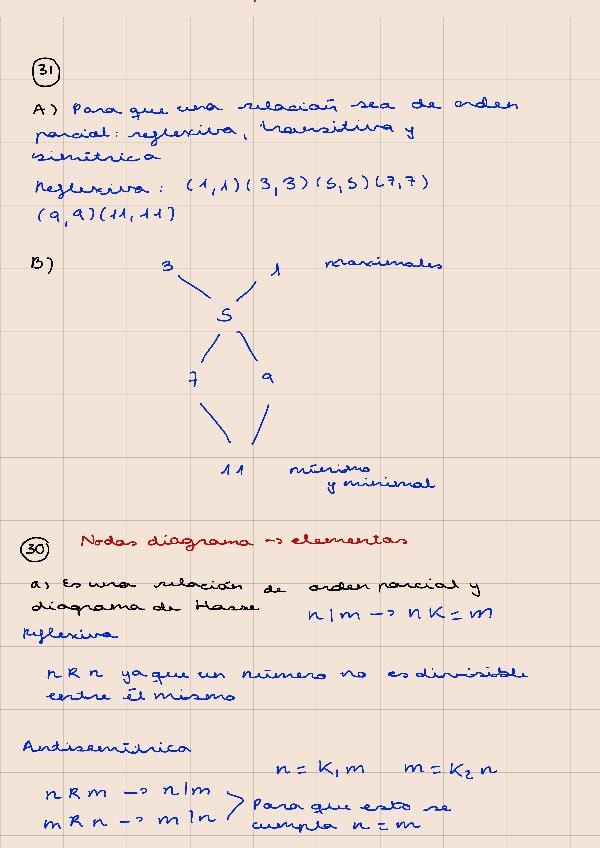 31
A) Para que una relación sea de orden
parcial: reflexiva, transitiva y
simétrica
Reflexiva: (1,1)(3,3)(5,5)(7,7)
(9,9)(11,11)
B) 3 1 maximales
5
7 9
11 mínimo
y minimal
30 Nodos diagrama → elementos
a) Es una relación de orden parcial y
diagrama de Hasse n|m → nK=m
Reflexiva
nRn ya que un número no es divisible
entre él mismo
Antisimétrica
n=K₁m m=K₂n
nRm → n|m
mRn → m|n Para que esto se
cumpla n=m